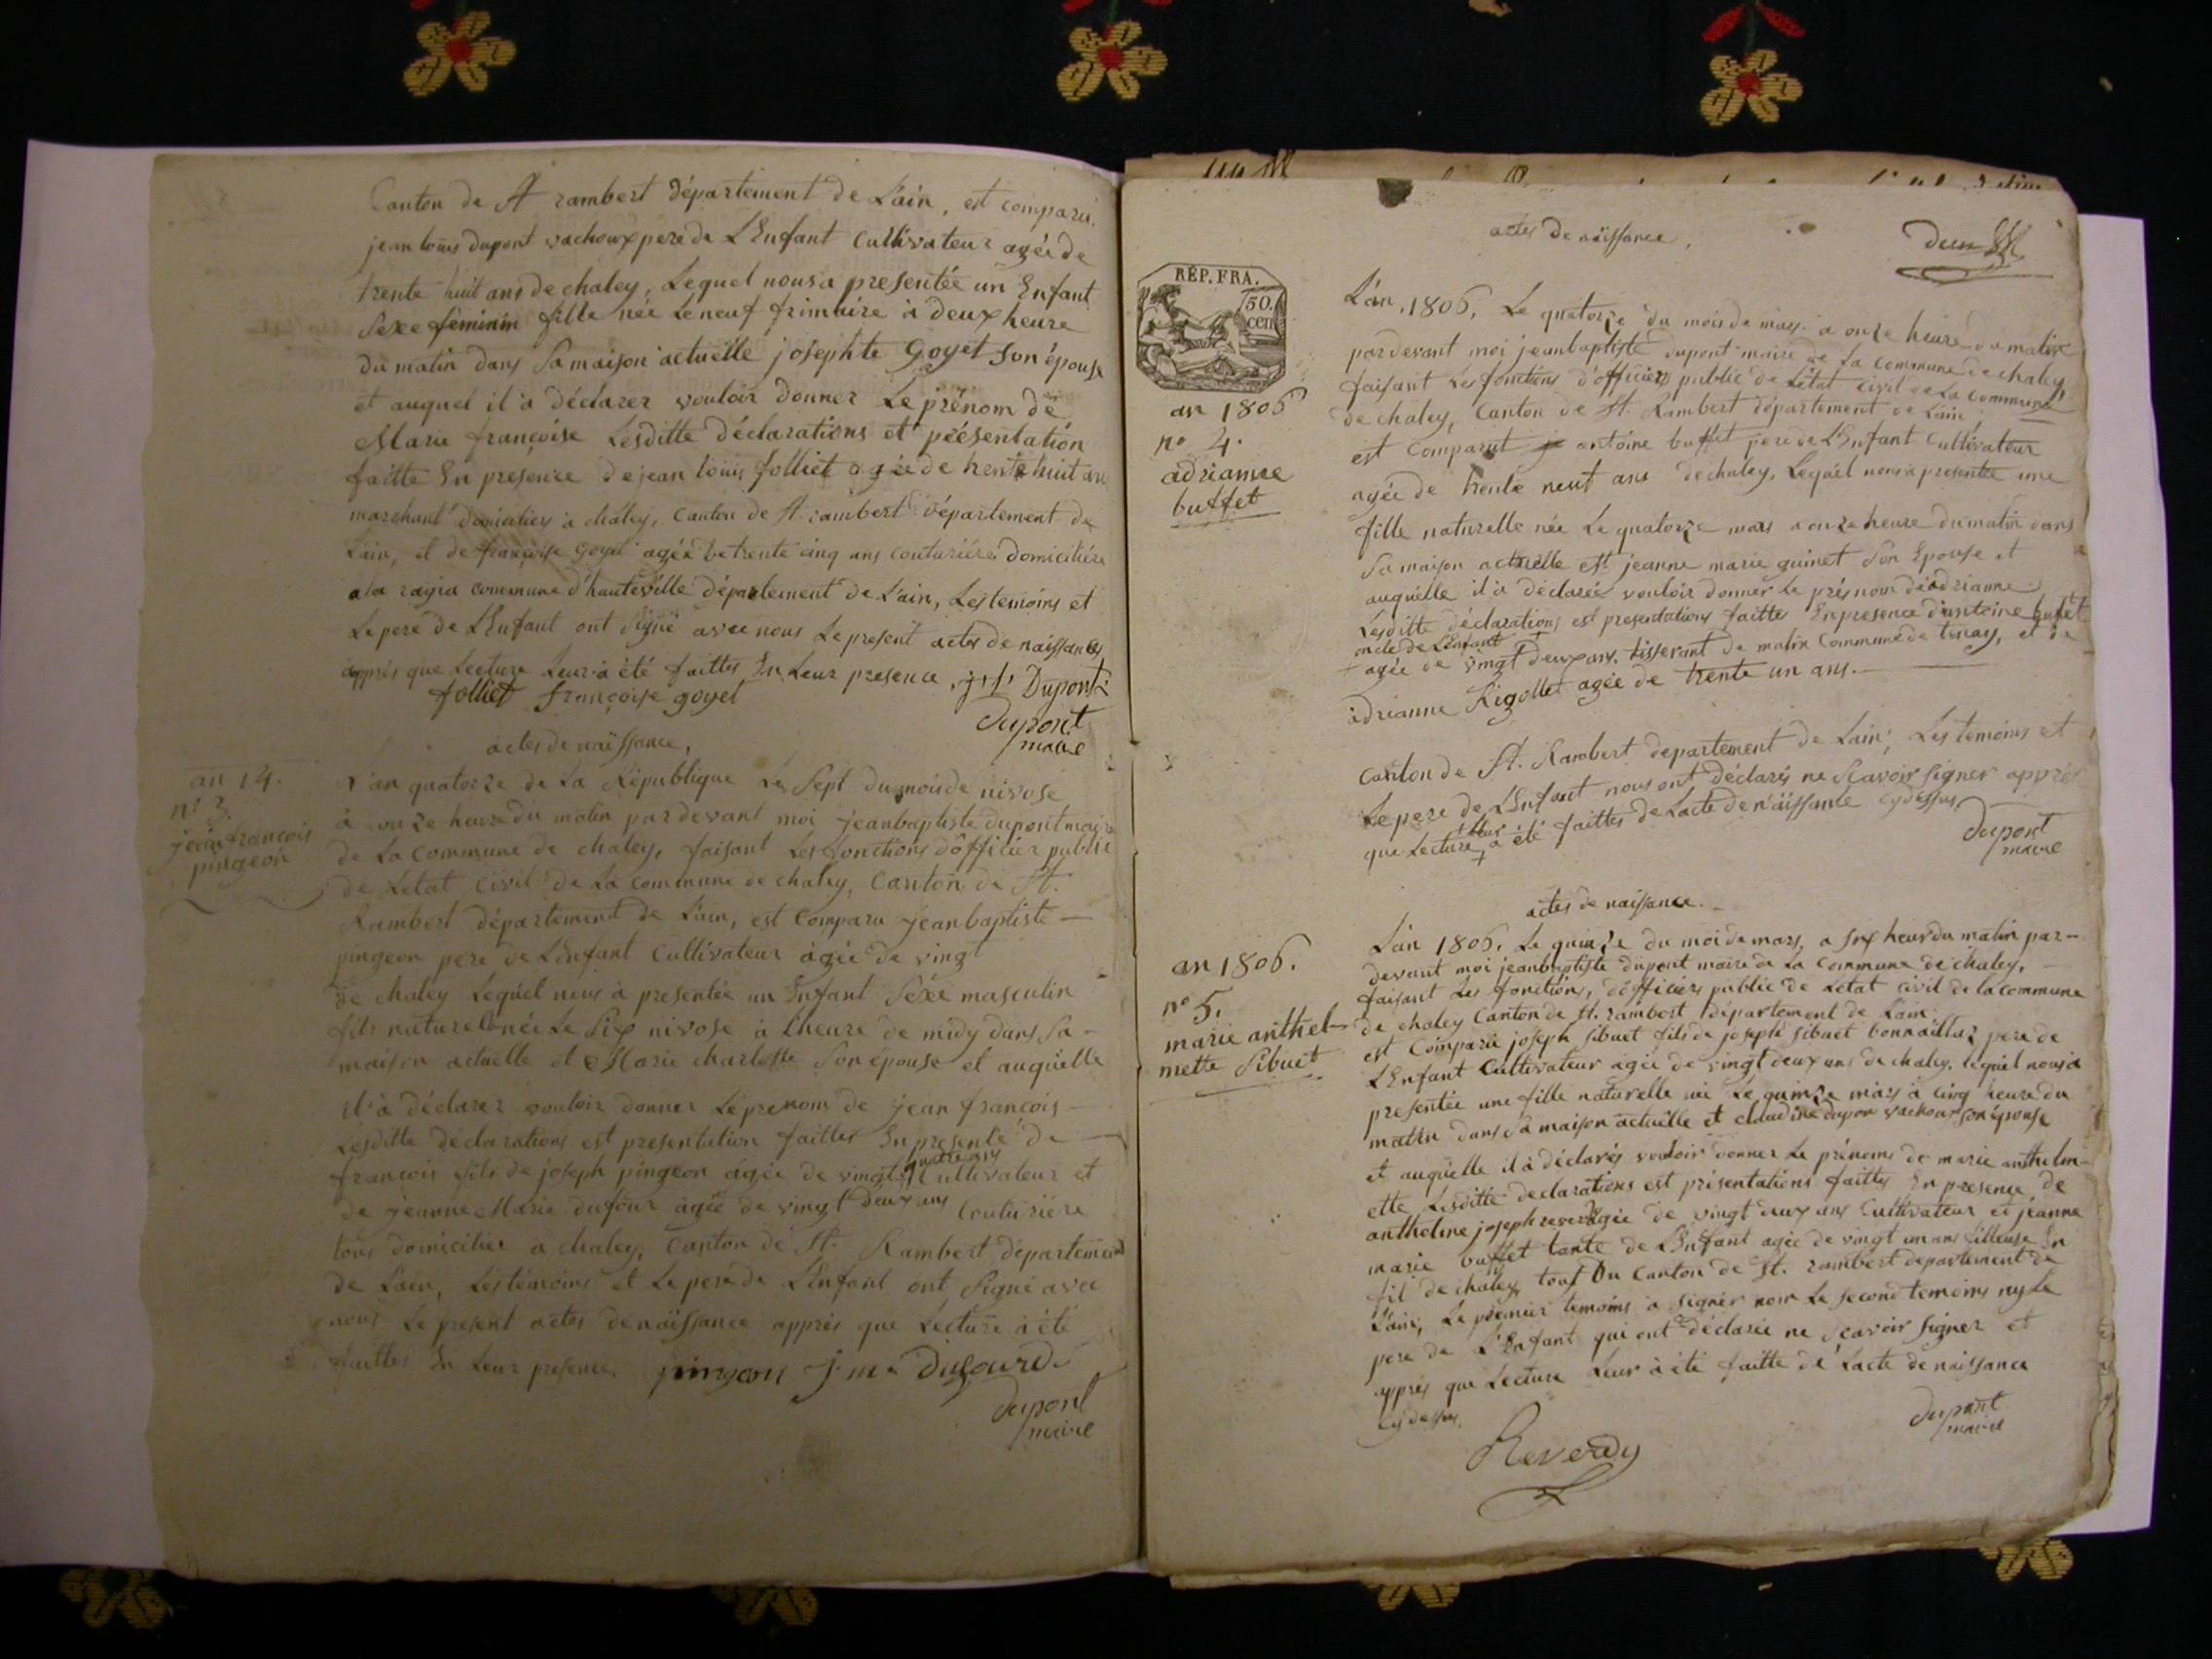 Canton de St rambert département de Lain, est comparu
jean louis dupont vachoux pere de LEnfant Cultivateur agée de
trente huit ans de chaley, Lequel nous a presentée un Enfant
Sexe féminin fille née Le neuf frimaire à deux heure
du matin dans Sa maison actuelle josephte Goyet Son épouse
et auquel il à déclarer vouloir donner Le prénom de
Marie françoise Lesditte déclarations et présentation
faitte En presence de jean louis folliet agée de trente huit ans
marchant à chaley, Canton de St rambert département de
Lain, et de françoise goyet agée de trente cinq ans couturiére domiciliére
a la ragia commune d'hauteville département de Lain, Les temoins et
Le pere de LEnfant ont Signé avec nous Le present actes de naissances
apprés que Lecture Leur à été faittes En Leur presence, j.l. Dupont
folliet françoise goyet
Dupont
maire
actes de naissance,
an 14.
n° 3.
jean françois
pingeon
L'an quatorze de La République Le Sept du mois de nivose
à onze heure du matin pardevant moi jeanbaptiste dupont maire
de La Commune de chaley, faisant Les fonctions d'officier public
de Letat Civil de La Commune de chaley, Canton de St.
Rambert département de Lain, est Comparu jeanbaptiste
pingeon pere de LEnfant Cultivateur agée de vingt
de chaley Lequel nous à presentée un Enfant Sexe masculin
fils naturel née Le Six nivose à Lheure de midy dans Sa
maison actuelle et Marie charlotte Son épouse et auquelle
il à déclarer vouloir donner Le prenom de jean françois
Lesditte déclarations est presentation faittes En presente de
quatre ans
francois fils de joseph pingeon agée de vingt Cultivateur et
de jeanne Marie dufour agée de vingt deux ans Couturiére
tous domicilier a chaley, Canton de St. Rambert département
de Lain, Les témoins et Le pere de LEnfant ont Signé avec
nous Le present actes de naissance apprés que Lecture à été
faittes En Leur presence. pingeon j. m. Dufour
Dupont
maire
actes de naissance,
deux
RÉP. FRA.
50.
cen
an 1806
n° 4.
adrianne
buffet
Lan, 1806, Le quatorze du mois de mars à onze heure du matin
pardevant moi jeanbaptiste dupont maire de La Commune de chaley
faisant Les fonctions d'officier public de Létat Civil de La Commune
de chaley, Canton de St. Rambert département de Lain
est Comparut antoine buffet pere de LEnfant Cultivateur
agée de trente neuf ans de chaley, Lequel nous à presentée une
fille naturelle née Le quatorze mars a onze heure du matin dans
Sa maison actuelle est jeanne marie guinet Son Epouse et
auquelle il à déclarée vouloir donner Le prénom de adrianne
Lesditte déclarations est presentations faittes En presence d'antoine buffet
oncle de LEnfant
agée de vingt deux ans, tisserant de malix Commune de tenay, et de
adrianne Rigollet agée de trente un ans.
Canton de St. Rambert departement de Lain, Les temoins et
Le pere de LEnfant nous ont déclarés ne Scavoir Signer apprés
que Lecture leur a été faittes de Lacte de naissance Cydessus,
Dupont
maire
actes de naissance.
an 1806.
n° 5.
marie anthel-
mette Sibuet
Lan 1806. Le quinze du moi de mars, a Six heur du matin par-
devant moi jeanbaptiste dupont maire de La Commune de chaley.
faisant Les fonctions, d'officiers public de Letat civil de la Commune
de chaley Canton de St. rambert département de Lain
est Comparu joseph Sibuet fils de joseph Sibuet bonnaillaz pere de
LEnfant Cultivateur agée de vingt deux ans de chaley, lequel nous à
presentée une fille naturelle née Le quinze mars à Cinq heure du
matin dans Sa maison actuelle et claudine dupon vachoux son épouse
et auquelle il à déclarés vouloir donner Le prénoms de marie anthelm-
ette Lesditte declarations est présentations faittes En presence de
anthelme joseph reverdy agée de vingt deux ans Cultivateur et jeanne
marie buffet tante de LEnfant agée de vingt un ans filleuse En
fil de chaley tous Du Canton de St. rambert departement de
Lain, Le premier temoins a Signér non Le second temoins ny Le
pere de LEnfant qui ont déclarée ne Scavoir Signer et
apprés que Lecture Leur à été faitte de Lacte de naissance
Cydessus.
Dupont
maire
Reverdy